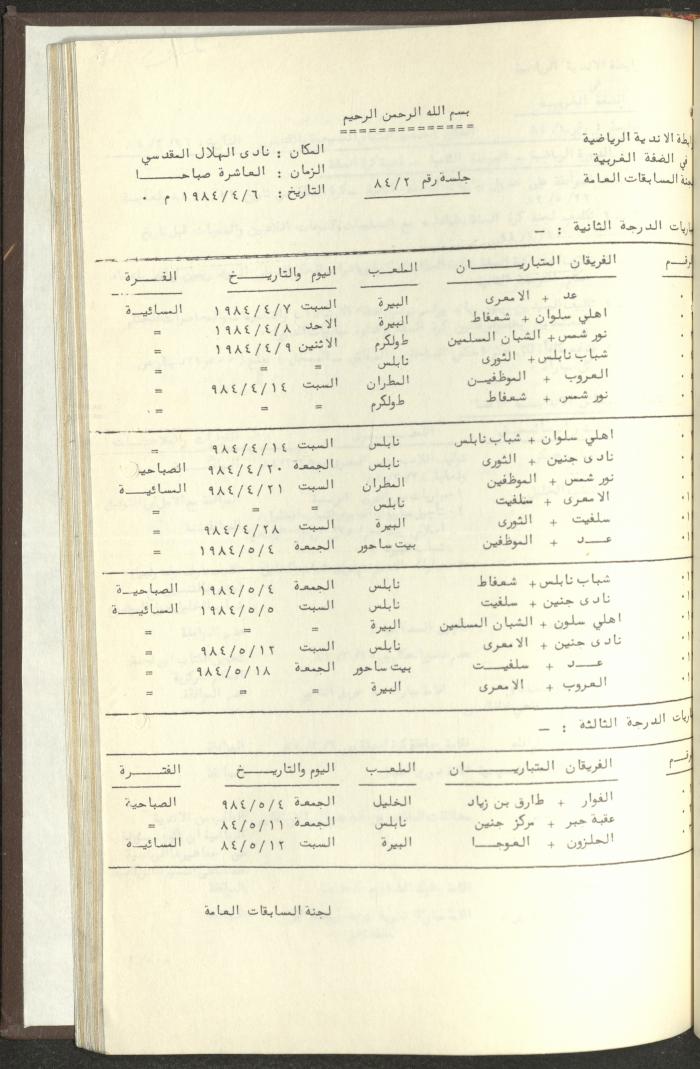 بسم الله الرحمن الرحيم
=============
بطة الاندية الرياضية
في الضفة الغربية
جنة المسابقات العامة
جلسة رقم ٨٤/٢
المكان : نادى الهلال المقدسي
الزمان : العاشرة صباحـــــا
التاريخ : ١٩٨٤/٤/٦ م ٠
باريات الدرجة الثانية : ـ
رقـــم الفريقان المتباريــــــــان الملعــب اليوم والتاريـــــخ الفتــرة
عد + الامعرى البيرة السبت ١٩٨٤/٤/٧ المسائيـة
اهلي سلوان + شعفاط البيرة الاحد ١٩٨٤/٤/٨ =
نور شمس + الشبان المسلمين طولكرم الاثنين ١٩٨٤/٤/٩ =
شباب نابلس + الثورى نابلس = = =
العروب + الموظفيـن المطران السبت ٩٨٤/٤/١٤ =
نور شمس + شعفاط طولكرم = = =
اهلي سلوان + شباب نابلس نابلس السبت ٩٨٤/٤/١٤ =
نادى جنين + الثورى نابلس الجمعة ٩٨٤/٤/٢٠ الصباحية
نور شمس + الموظفين المطران السبت ٩٨٤/٤/٢١ المسائيــة
الامعرى + سلفيت نابلس = = =
سلفيت + الثورى البيرة السبت ٩٨٤/٤/٢٨ =
عـــد + الموظفين بيت ساحور الجمعة ١٩٨٤/٥/٤ =
شباب نابلس + شعفاط نابلس الجمعة ١٩٨٤/٥/٤ الصباحيـة
نادى جنين + سلفيت نابلس السبت ١٩٨٤/٥/٥ المسائيــة
اهلي سلون + الشبان المسلمين البيرة = = =
نادى جنين + الامعرى نابلس السبت ٩٨٤/٥/١٢ =
عـــد + سلفيــت بيت ساحور الجمعة ٩٨٤/٥/١٨ =
العروب + الامعرى البيرة = = =
باريات الدرجة الثالثة : ـ
رقــم الفريقان المتباريــــــان الملعــب اليوم والتاريـــــخ الفتـــرة
الفوار + طارق بن زياد الخليل الجمعة ٩٨٤/٥/٤ الصباحية
عقبة جبر + مركز جنين نابلس الجمعة ٨٤/٥/١١ =
الجلزون + العوجـــا البيرة السبت ٨٤/٥/١٢ المسائيــة
لجنة المسابقات العامة